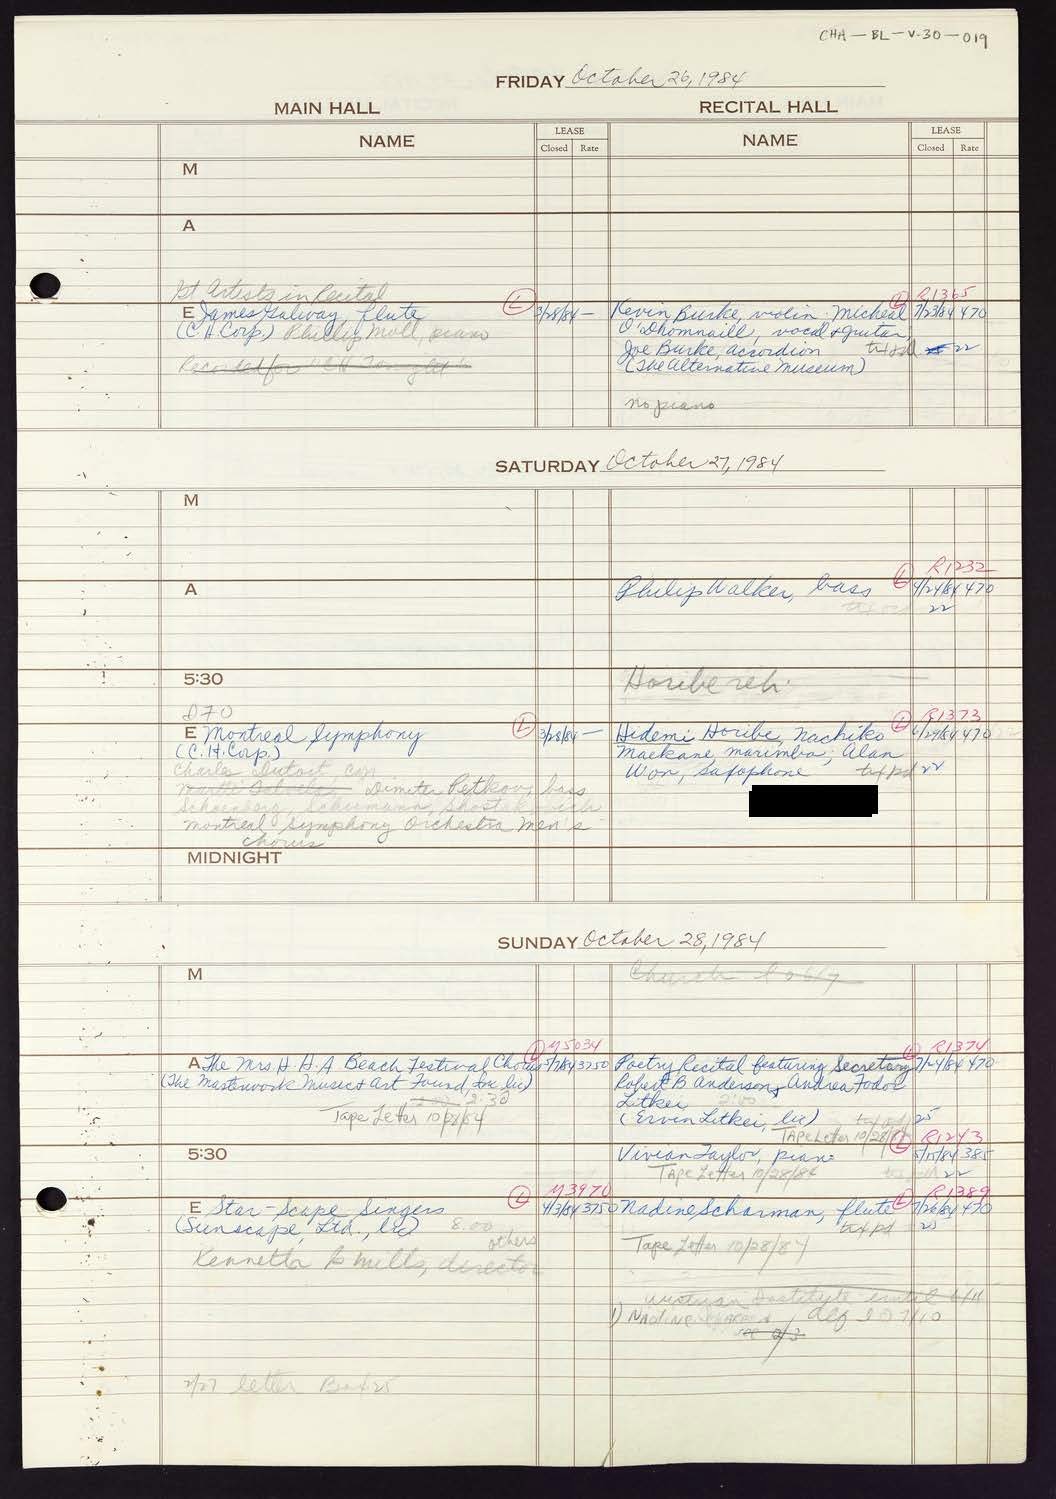 CHA-BL-V.30-019
FRIDAY October 26, 1984
MAIN HALL
RECITAL HALL
NAME
LEASE
Closed Rate
NAME
LEASE
Closed Rate
M
A
1st Artists in Recital
E James Galway, flute
(C.H.Corp.) Phillip Moll, piano
L 3/28/84 —
Recorded for "CH Tonight"
L R1365
Kevin Burke, violin Micheal 7/23/84 470
O'Dhomnaill, vocal & guitar,
Joe Burke, accordion 22
(The Alternative Museum)
no piano
SATURDAY October 27, 1984
M
A
L R1232
Philip Walker, bass 4/24/84 470
22
5:30
Horibe reh.
D70
E Montreal Symphony L 3/28/84 —
(C.H.Corp.)
Charles Dutoit, con
Dimiter Petkov, bass
Schoenberg, Schumann, Shostakovich
Montreal Symphony Orchestra Men's
chorus
L R1373
Hidemi Horibe, Nachiko 6/29/84 470
Maekane, marimba; Alan
Won, saxophone txt pd 22
MIDNIGHT
SUNDAY October 28, 1984
M
Church Lobby
A The Mrs. H.H.A Beach Festival Chorus
L M5034
5/7/84 3750
(The Masterwork Music & Art Found, Inc lic)
2:30
Tape Letter 10/28/84
L R1374
Poetry Recital featuring Secretary 7/24/84 470
Robert B Anderson, Andrea Fodor
Litkei 2:00
(Ervin Litkei, lic) 25
Tape Letter 10/28/84
5:30
L R1243
Vivian Taylor, piano 5/15/84 385
Tape Letter 10/28/84 22
E Star-Scape Singers
L M3970
4/3/84 3750
(Sunscape, Ltd., lic) 8:00
others
Kenneth G Mills, director
L R1389
Nadine Scharman, flute 7/26/84 470
txt pd 25
Tape Letter 10/28/84
Institute until 6/11
1) Nadine 7/10
2/3
2/27 letter